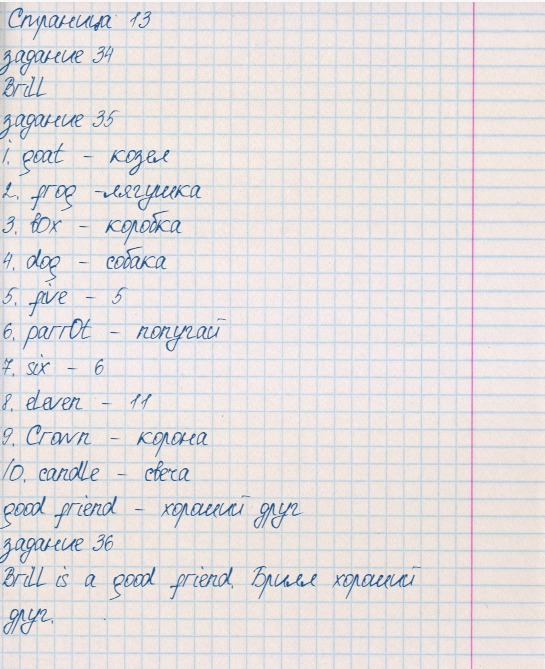 Страница 13
задание 34
Brill
задание 35
1. goat - козел
2. frog - лягушка
3. box - коробка
4. dog - собака
5. five - 5
6. parrot - попугай
7. six - 6
8. eleven - 11
9. Crown - корона
10. candle - свеча
good friend - хороший друг
задание 36
Brill is a good friend. Брилл хороший
друг.